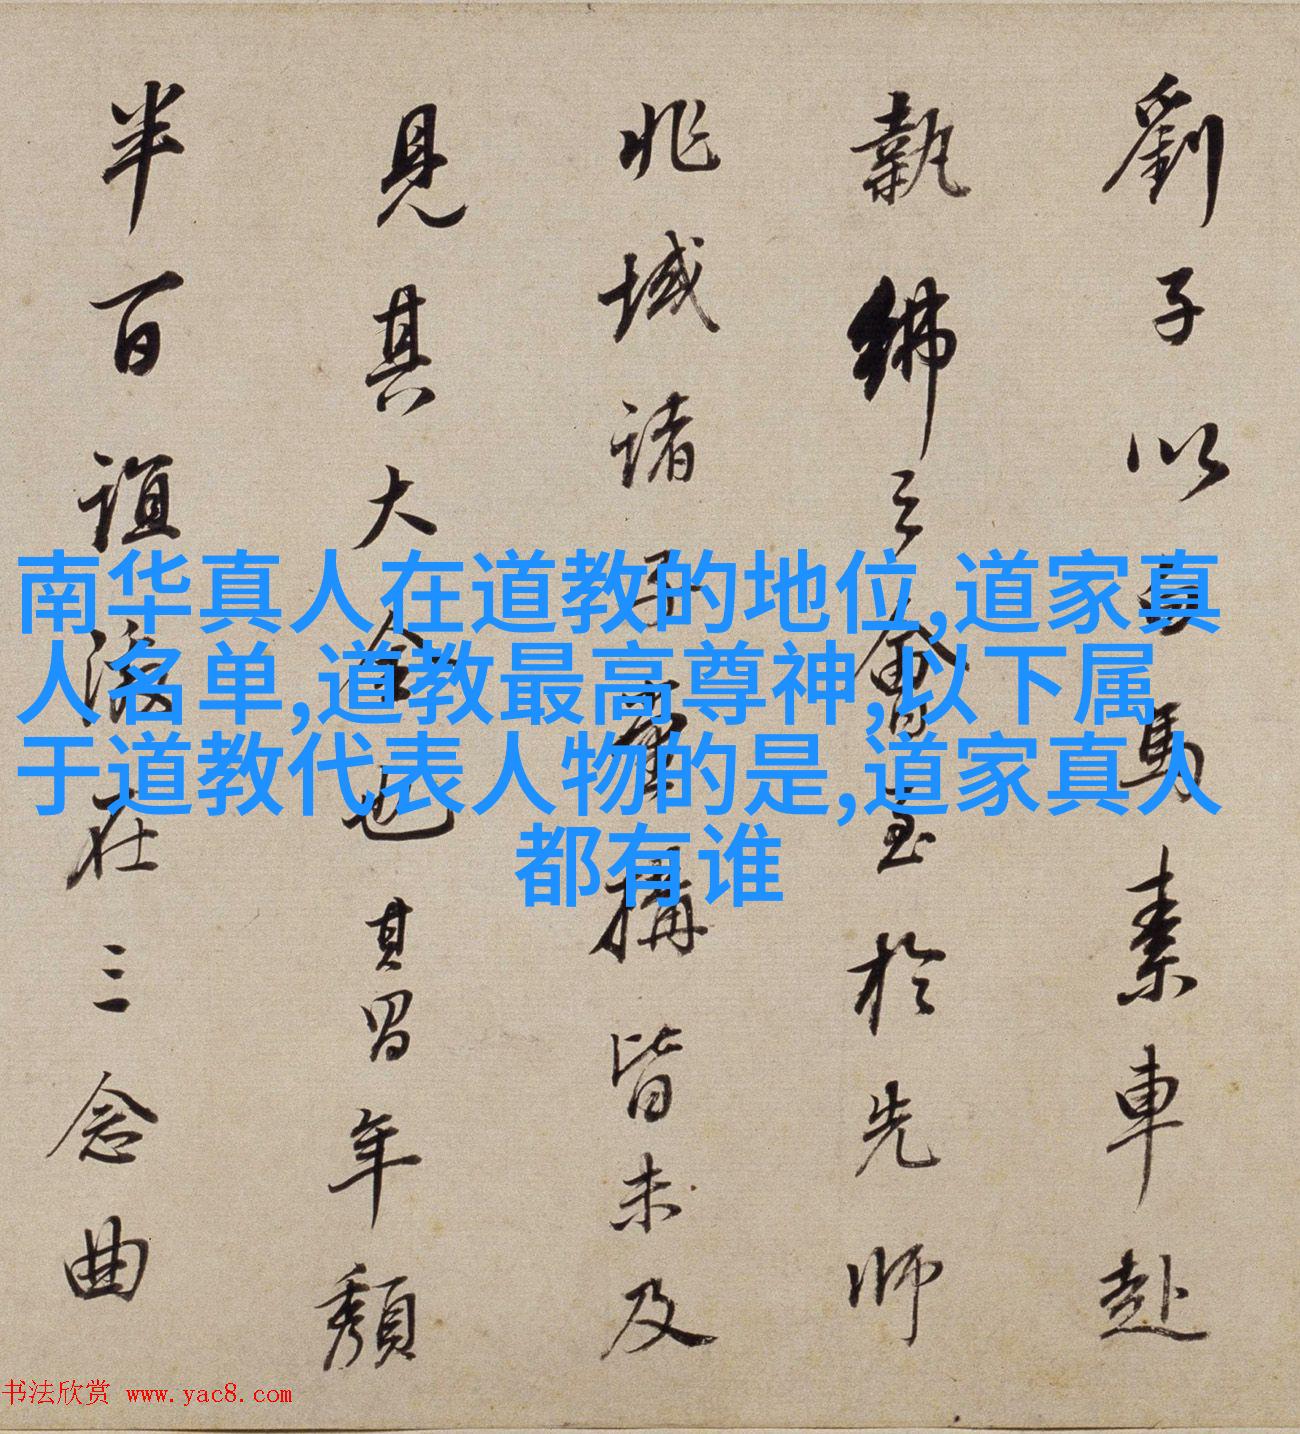 劉子以
馬素車赴
執紼之會至於先師
兆域諸子
搆皆未及
見其大全也其習年頽
半百誼
在三念曲
南华真人在道教的地位,道家真
人名单,道教最高尊神,以下属
于道教代表人物的是,道家真人
都有谁
书法欣赏 www.yac8.com